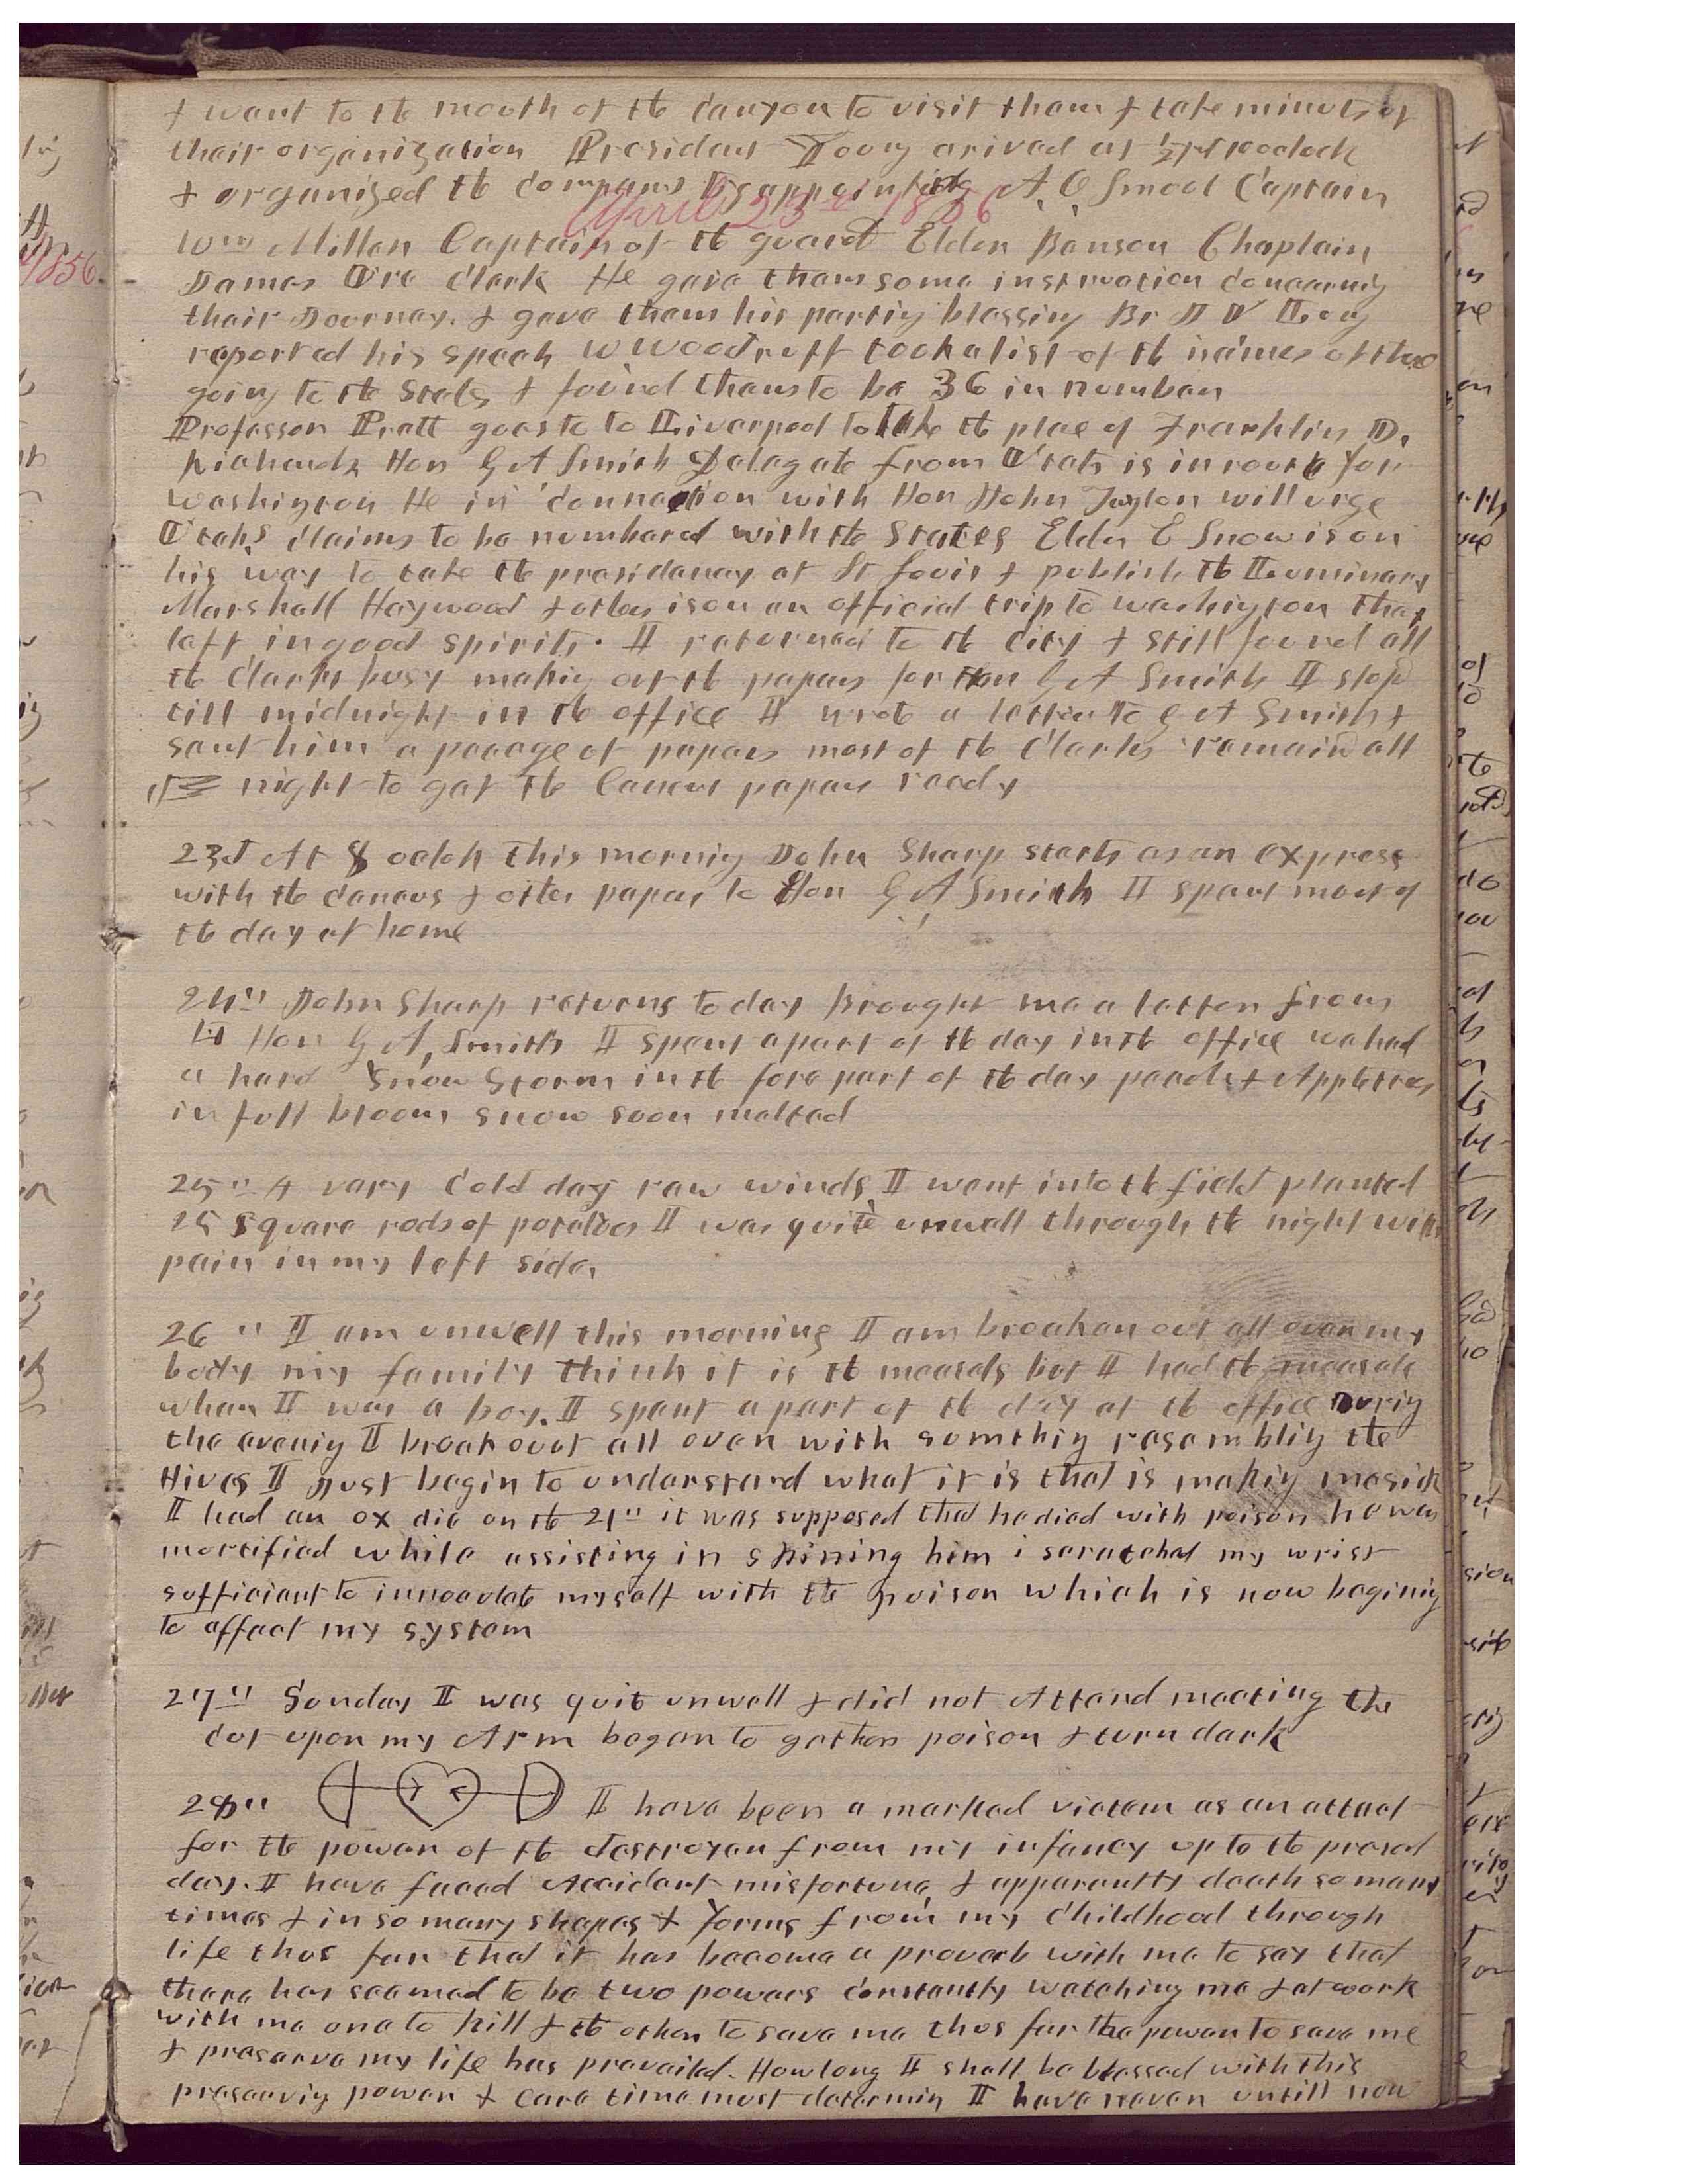 & went to the mouth of the canyon to visit them & take minutes of
their organization President Young arived at ½ past 10 oclock
& organized the company By appointing A. O. Smoot Captain
April 23rd 1856
Wm Miller Captain of the guard Elder Benson Chaplain
James Ure Clerk He gave them some instruction concerning
their Journey. & gave them his parting blessing Br J V Long
reported his speech W Woodruff took a list of the names of those
going to the States & found them to be 36 in number
Professer Pratt goes to to Liverpool to take the place of Franklin D.
Richards Hon G A Smith Delegate from Utah is in route for
Washington He in connection with Hon John Taylor will urge
Utahs claims to be numbered with the States Elder E Snow is on
his way to take the presidency at St Louis & publish the Luminary
Marshall Haywood & others is on an official trip to washington They
left in good spirits. I returned to the City & still found all
the Clerks busy making out the papers for Hon G A Smith I stop
till midnight in the office I wrote a letter to G A Smith &
sent him a pacage of papers most of the Clerks remained all
night to get the Census papers ready
23d At 8 oclok this morning John Sharp starts as an express
with the census & other papers to Hon G A Smith I spent most of
the day at home
24" John Sharp returns to day Brought me a letter from
Hon G A, Smith I spent a part of the day in the office we had
a hard Snow Storm in the fore part of the day peach & Appletrees
in full bloom snow soon melted
25" A very Cold day raw winds I went into the field planted
25 square rods of potatoes I was quite unwell through the night with
pain in my left side,
26 " I am unwell this morning I am broaken out all over my
body my family think it is the measels but I had the measels
when I was a boy. I spent a part of the day at the office During
the evening I broak out all over with somthing resembling the
Hives I just begin to understand what it is that is making me sick
I had an ox die on the 21" it was supposed that he died with poison he was
mortified while assisting in skining him i scratched my wrist
sufficient to innoculate myself with the poison which is now begining
to affect my system
27" Sunday I was quite unwell & did not Attend meeting the
cut upon my Arm began to gather poison & turn dark
28" I have been a marked victem as an attact
for the power of the destroyer from my infancy up to the present
day. I have faced Accident misfortune, & apparently death so many
times & in so many shapes & forms from my childhood through
life thus far that it has become a proverb with me to say that
there has seemed to be two powers constantly watching me & at work
with me one to kill & the other to save me thus far the power to save me
& preserve my life has prevailed. How long I shall be blessed with this
preserving power & care time must determin I have never untill now